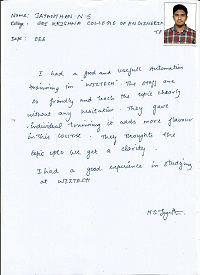 NAME: JAYANTHAN. N. S
College: SRI KRISHNA COLLEGE OF ENGINEERING
Dept: EEE
I had a good and usefull Automation
training in WIZTECH. The staff are
so friendly and teach the topic clearly
without any hesitation. They gave
individual training it adds more flavour
in this course. They thoughts the
topic upto we get a clarity.
I had a good experience in studying
at WIZTECH